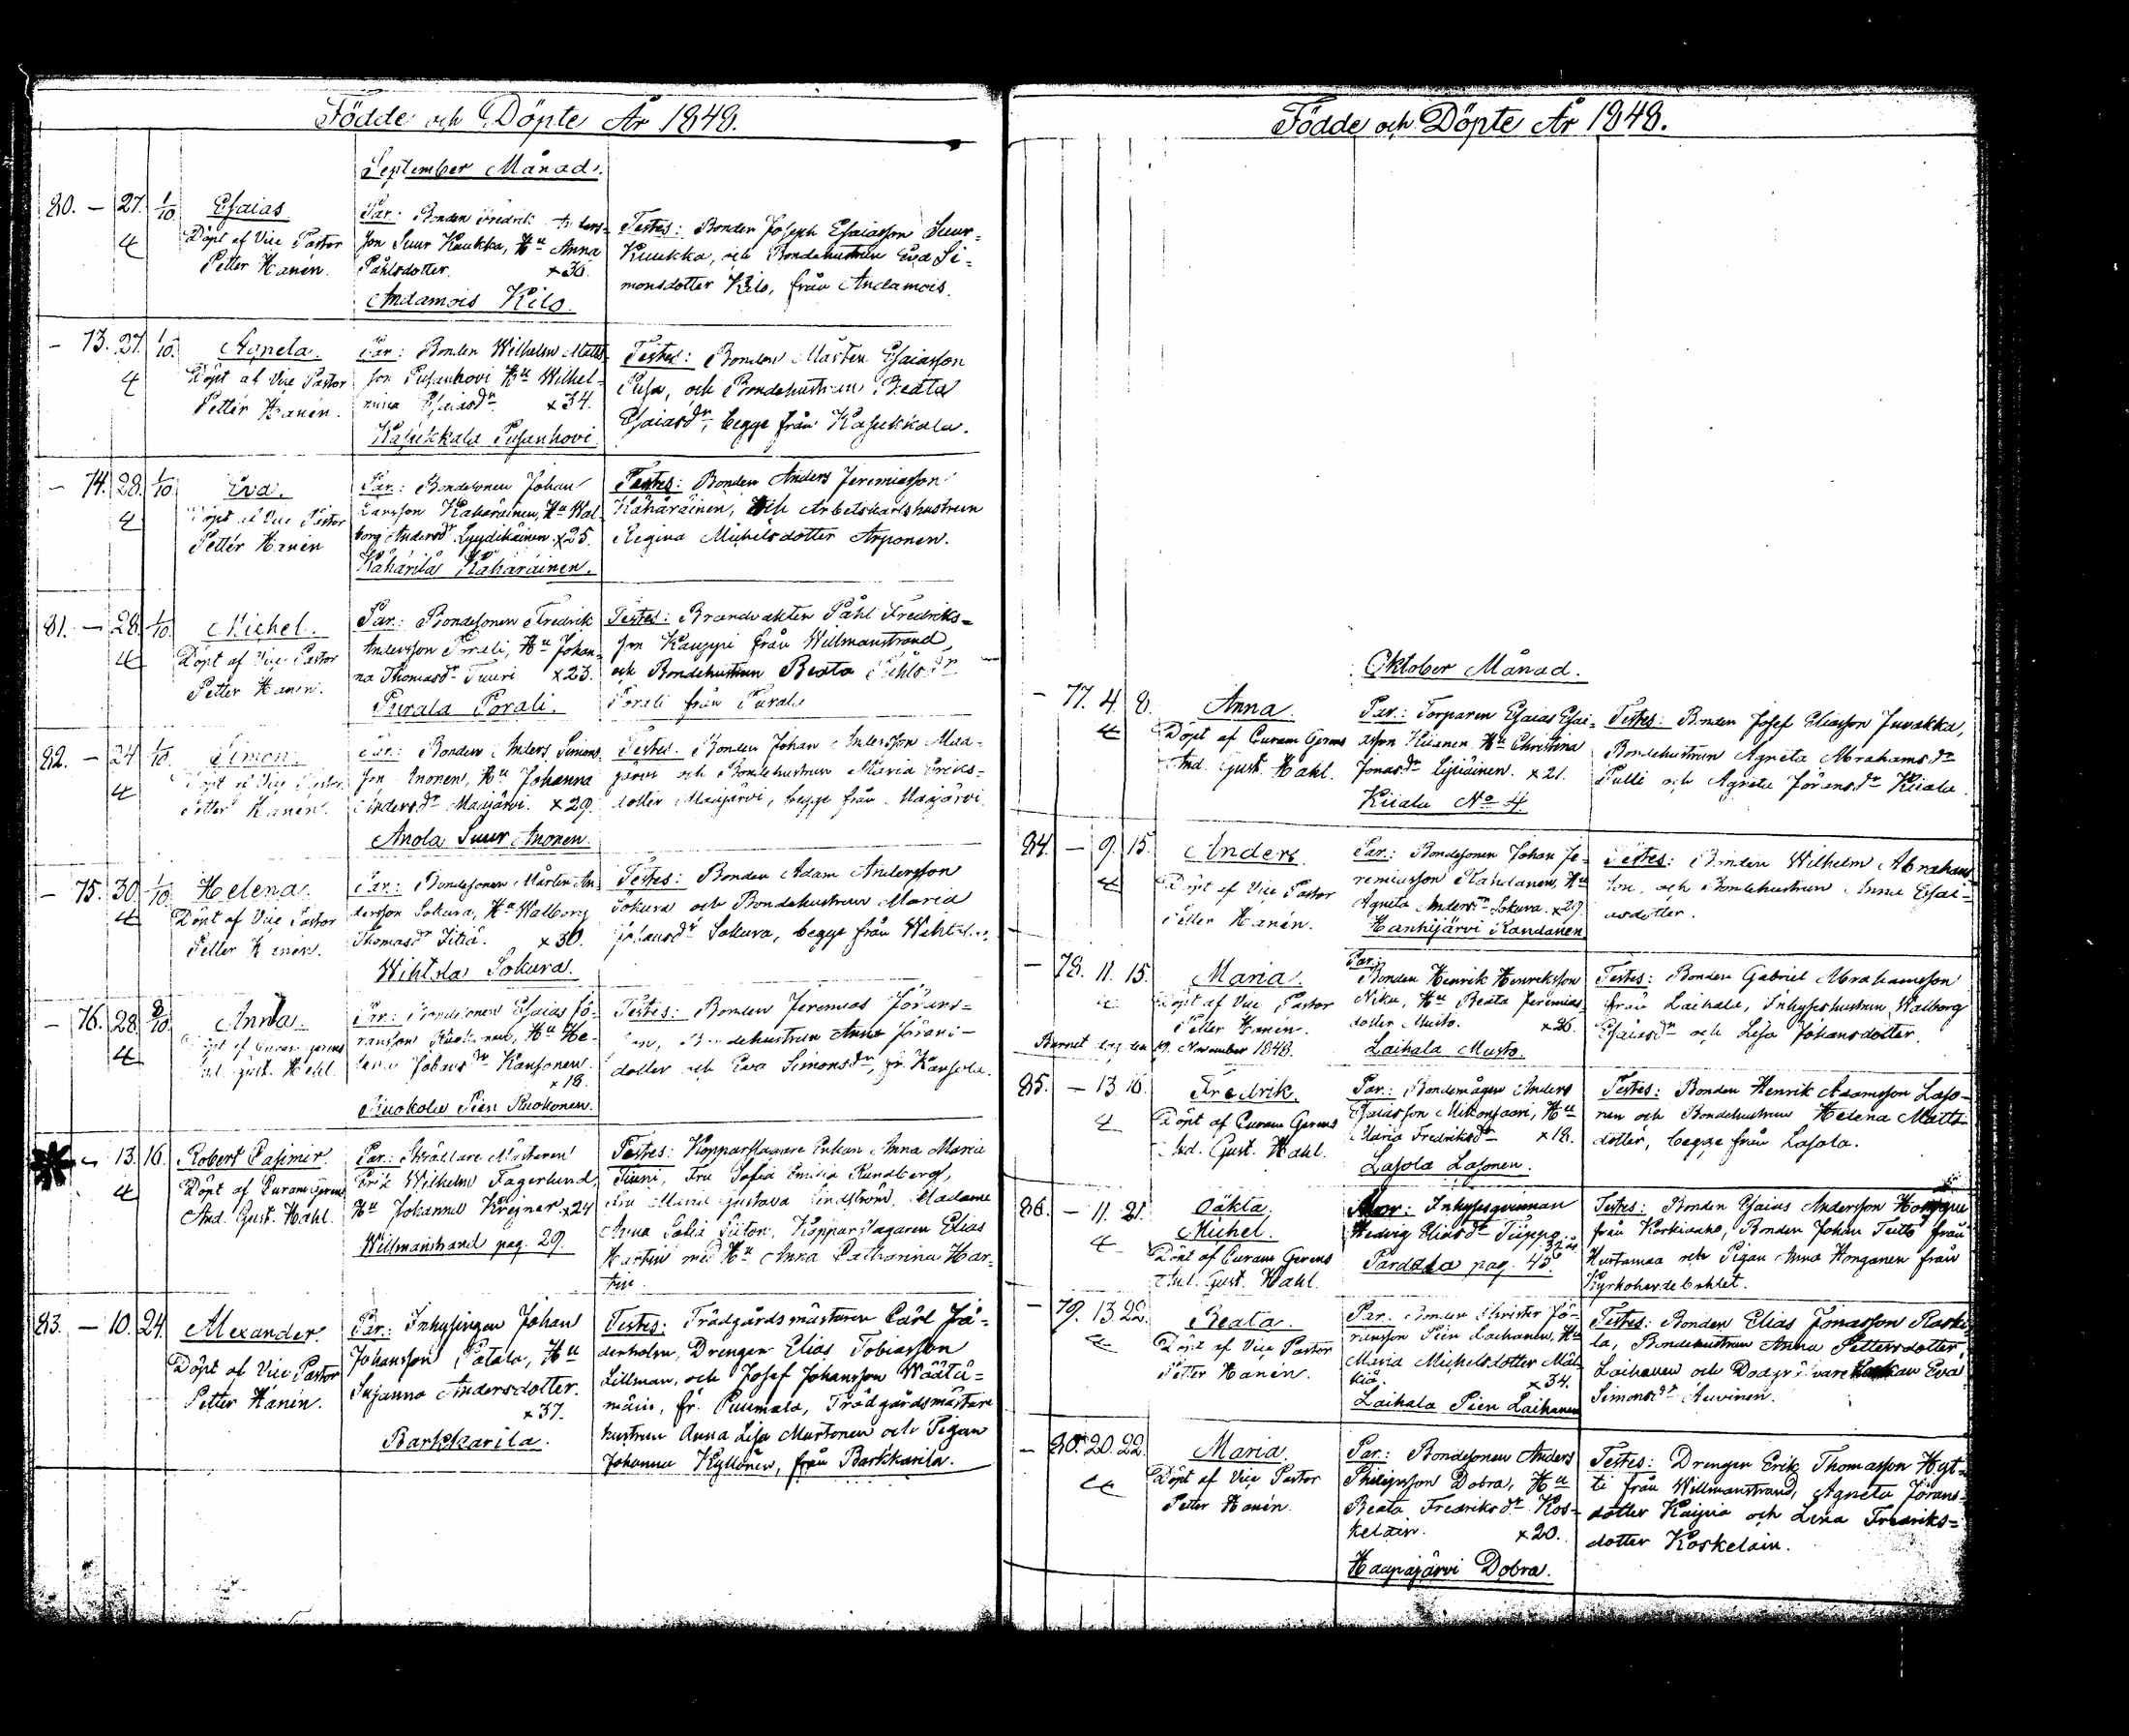 Födde och Döpte År 1848.
September Månad.
80. — 27. 1/10. Esaias
4 Döpt af Vice Pastor
Petter Hanén.
Par: Bonden Fredrik Anders-
son Suur Kuukka, Hu Anna
Påhlsdotter. x 36.
Andamois Kilo.
Testes: Bonden Joseph Esaiasson Suur-
Kuukka, och Bondehustrun Eva Si-
monsdotter Kilo, från Andamois.
— 73. 27. 1/10. Agneta.
4 Döpt af Vice Pastor
Petter Hanén.
Par: Bonden Wilhelm Matts-
son Pusanhovi Hu Wilhel-
mina Esaiasdr x 34.
Kasukkala Pusanhovi
Testes: Bonden Mårten Esaiasson
Pusa, och Bondehustrun Beata
Esaiasdr, begge från Kasukkala.
— 74. 28. 1/10. Eva.
4 Döpt af Vice Pastor
Petter Hanén
Par: Bondesonen Johan
Larsson Kähäräinen, Hu Wal-
borg Andersdr Lyydikäinen x 25.
Kähärilä Kähäräinen.
Testes: Bonden Anders Jeremiasson
Kähäräinen, och Arbetskarlshustrun
Regina Michelsdotter Arponen.
81. — 28. 1/10. Michel.
4 Döpt af Vice Pastor
Petter Hanén.
Par: Bondesonen Fredrik
Andersson Porali, Hu Johan-
na Thomasdr Tuuri x 23.
Purala Porali.
Testes: Brandvakten Påhl Fredriks-
son Kauppi från Willmanstrand
och Bondehustrun Beata Påhlsdr
Porali från Purala
82. — 24. 1/10. Simon.
4 Döpt af Vice Pastor
Petter Hanén.
Par: Bonden Anders Simons-
son Anonen, Hu Johanna
Andersdr Maajärvi. x 29.
Anola Suur Anonen.
Testes: Bonden Johan Andersson Maa-
järvi och Bondehustrun Maria Eriks-
dotter Maajärvi, begge från Maajärvi.
— 75. 30. 1/10. Helena.
4 Döpt af Vice Pastor
Petter Hanén.
Par: Bondesonen Mårten An-
dersson Sokura, Hu Walborg
Thomasdr Titiä. x 30.
Wihtola Sokura.
Testes: Bonden Adam Andersson
Sokura och Bondehustrun Maria
Johansdr Sokura, begge från Wihtola.
— 76. 28. 8/10. Anna.
4 Döpt af Curam Gerens
And. Gust. Hahl.
Par: Bondesonen Esaias Jö-
ransson Ruokonen, Hu He-
lena Johansdr Kansonen.
x 18.
Ruokola Pien Ruokonen.
Testes: Bonden Jeremias Jörans-
son, Bondehustrun Anna Jörans-
dotter och Eva Simonsdr, fr. Kansola.
— 13. 16. Robert Casimir.
4 Döpt af Curam Gerens
And. Gust. Hahl.
Par: Skräddare Mästaren
Erik Wilhelm Fagerlund,
Hu Johanna Krejner x 24
Willmanstrand pag. 29.
Testes: Kopparslagare Enkan Anna Maria
Tiuni, Fru Sofia Emilia Rundberg,
Fru Maria Gustava Lindström, Madame
Anna Sofia Siiton, Kopparslagaren Elias
Martin med Hu Anna Catharina Har-
tin.
83. — 10. 24. Alexander.
Döpt af Vice Pastor
Petter Hanén.
Par: Inhysingen Johan
Johansson Patala, Hu
Susanna Andersdotter.
x 37.
Barkkarila.
Testes: Trädgårdsmästaren Carl Frå-
denholm, Drengen Elias Tobiasson
Lillman, och Josef Johansson Wäätä-
mäin, fr. Puumala, Trädgårdsmästare
hustrun Anna Lisa Murtonen och Pigan
Johanna Kyllönen, från Barkkarila.
Födde och Döpte År 1848.
Oktober Månad.
— 77. 4. 8. Anna.
4 Döpt af Curam Gerens
And. Gust. Hahl.
Par: Torparen Esaias Esai-
asson Kiianen Hu Christina
Jonasdr Lyijiäinen. x 21.
Kiiala No 4.
Testes: Bonden Josef Eliasson Juvakka,
Bondehustrun Agneta Abrahamsdr
Pulli och Agneta Jöransdr Kiiala.
84. — 9. 15. Anders.
4 Döpt af Vice Pastor
Petter Hanén.
Par: Bondesonen Johan Je-
remiasson Kandanen, Hu
Agneta Andersdr Sokura. x 29.
Hanhijärvi Kandanen
Testes: Bonden Wilhelm Abrahams-
son, och Bondehustrun Anna Esai-
asdotter.
— 78. 11. 15. Maria.
Döpt af Vice Pastor
Petter Hanén.
Barnet dog den 19. November 1848.
Par:
Bonden Henrik Henriksson
Niku, Hu Beata Jeremias-
dotter Musto. x 26.
Laihala Musto.
Testes: Bonden Gabriel Abrahamsson
från Laihala, Inhyseshustrun Walborg
Esaiasdr och Lisa Johansdotter.
85. — 13. 16. Fredrik.
4 Döpt af Curam Gerens
And. Gust. Hahl.
Par: Bondemågen Anders
Esaiasson Mikonsaari, Hu
Maria Fredriksdr x 18.
Lasola Lasonen.
Testes: Bonden Henrik Adamsson Laso-
nen och Bondehustrun Helena Matts-
dotter, begge från Lasola.
86. — 11. 21. Oäkta.
4 Michel.
Döpt af Curam Gerens
And. Gust. Hahl.
Mor: Inhysesqvinnan
Hedvig Eliasdr Tiippo
Pardala pag. 45.
Testes: Bonden Esaias Andersson Honganen
från Korkiaaho, Bonden Johan Teits från
Hurtamaa och Pigan Anna Honganen från
Kyrkoherdebohlet.
— 79. 13. 22. Beata.
4 Döpt af Vice Pastor
Petter Hanén.
Par: Bonden Christer Jö-
ransson Pien Laihanen, Hu
Maria Michelsdotter Mäl-
kiä. x 34.
Laihala Pien Laihanen
Testes: Bonden Elias Jonasson Raski-
la, Bondehustrun Anna Pettersdotter,
Laihanen och Enkan Eva
Simonsdr Auvinen.
— 80. 20. 22. Maria.
Döpt af Vice Pastor
Petter Hanén.
Par: Bondesonen Anders
Philipsson Dobra, Hu
Beata Fredriksdr Kos-
kelain. x 20.
Haapajärvi Dobra.
Testes: Drengen Erik Thomasson Hyt-
ti från Willmanstrand, Agneta Jörans-
dotter Kaipia och Lena Fredriks-
dotter Koskelain.